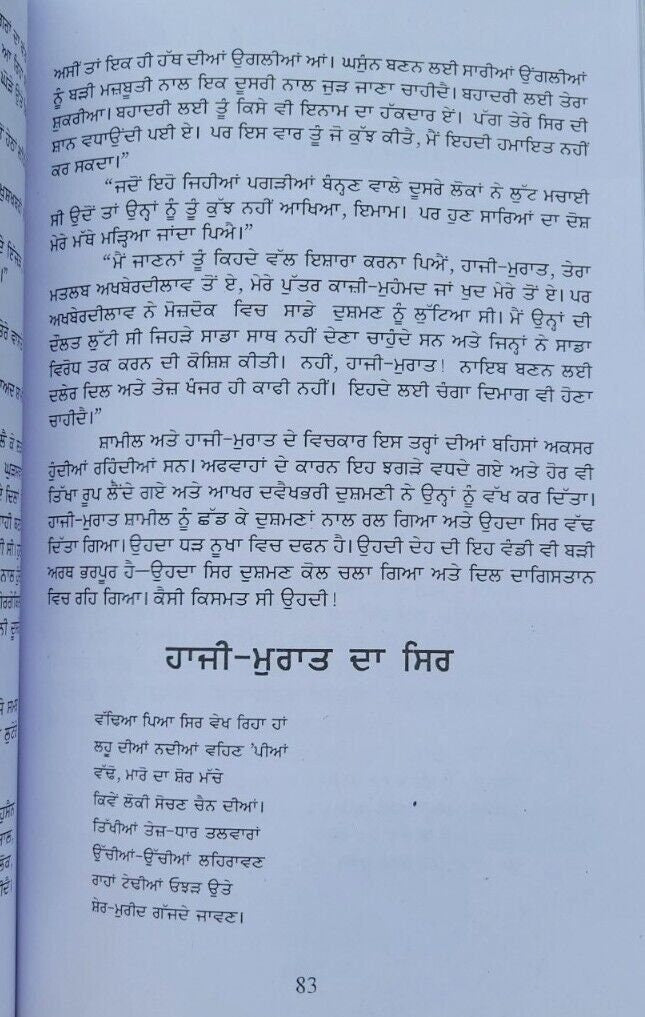 ਅਸੀਂ ਤਾਂ ਇਕ ਹੀ ਹੱਥ ਦੀਆਂ ਉਂਗਲੀਆਂ ਆਂ। ਘਸੁੰਨ ਬਣਨ ਲਈ ਸਾਰੀਆਂ ਉਂਗਲੀਆਂ
ਨੂੰ ਬੜੀ ਮਜ਼ਬੂਤੀ ਨਾਲ ਇਕ ਦੂਸਰੀ ਨਾਲ ਜੁੜ ਜਾਣਾ ਚਾਹੀਦੈ। ਬਹਾਦਰੀ ਲਈ ਤੇਰਾ
ਸ਼ੁਕਰੀਆ। ਬਹਾਦਰੀ ਲਈ ਤੂੰ ਕਿਸੇ ਵੀ ਇਨਾਮ ਦਾ ਹੱਕਦਾਰ ਏਂ। ਪੱਗ ਤੇਰੇ ਸਿਰ ਦੀ
ਸ਼ਾਨ ਵਧਾਉਂਦੀ ਪਈ ਏ। ਪਰ ਇਸ ਵਾਰ ਤੂੰ ਜੋ ਕੁੱਝ ਕੀਤੈ, ਮੈਂ ਇਹਦੀ ਹਮਾਇਤ ਨਹੀਂ
ਕਰ ਸਕਦਾ।”
“ਜਦੋਂ ਇਹੋ ਜਿਹੀਆਂ ਪਗੜੀਆਂ ਬੰਨ੍ਹਣ ਵਾਲੇ ਦੂਸਰੇ ਲੋਕਾਂ ਨੇ ਲੁੱਟ ਮਚਾਈ
ਸੀ ਉਦੋਂ ਤਾਂ ਉਨ੍ਹਾਂ ਨੂੰ ਤੂੰ ਕੁੱਝ ਨਹੀਂ ਆਖਿਆ, ਇਮਾਮ। ਪਰ ਹੁਣ ਸਾਰਿਆਂ ਦਾ ਦੋਸ਼
ਮੇਰੇ ਮੱਥੇ ਮੜ੍ਹਿਆ ਜਾਂਦਾ ਪਿਐ।”
“ਮੈਂ ਜਾਣਨਾਂ ਤੂੰ ਕਿਹਦੇ ਵੱਲ ਇਸ਼ਾਰਾ ਕਰਨਾ ਪਿਐਂ, ਹਾਜੀ-ਮੁਰਾਤ, ਤੇਰਾ
ਮਤਲਬ ਅਖਬੇਰਦੀਲਾਵ ਤੋਂ ਏ, ਮੇਰੇ ਪੁੱਤਰ ਕਾਜ਼ੀ-ਮੁਹੰਮਦ ਜਾਂ ਖੁਦ ਮੇਰੇ ਤੋਂ ਏ। ਪਰ
ਅਖਬੇਰਦੀਲਾਵ ਨੇ ਮੋਜ਼ਦੋਕ ਵਿਚ ਸਾਡੇ ਦੁਸ਼ਮਣ ਨੂੰ ਲੁੱਟਿਆ ਸੀ। ਮੈਂ ਉਨ੍ਹਾਂ ਦੀ
ਦੌਲਤ ਲੁੱਟੀ ਸੀ ਜਿਹੜੇ ਸਾਡਾ ਸਾਥ ਨਹੀਂ ਦੇਣਾ ਚਾਹੁੰਦੇ ਸਨ ਅਤੇ ਜਿਨ੍ਹਾਂ ਨੇ ਸਾਡਾ
ਵਿਰੋਧ ਤਕ ਕਰਨ ਦੀ ਕੋਸ਼ਿਸ਼ ਕੀਤੀ। ਨਹੀਂ, ਹਾਜੀ-ਮੁਰਾਤ! ਨਾਇਬ ਬਣਨ ਲਈ
ਦਲੇਰ ਦਿਲ ਅਤੇ ਤੇਜ਼ ਖੰਜਰ ਹੀ ਕਾਫੀ ਨਹੀਂ। ਇਹਦੇ ਲਈ ਚੰਗਾ ਦਿਮਾਗ ਵੀ ਹੋਣਾ
ਚਾਹੀਦੈ।”
ਸ਼ਾਮੀਲ ਅਤੇ ਹਾਜੀ-ਮੁਰਾਤ ਦੇ ਵਿਚਕਾਰ ਇਸ ਤਰ੍ਹਾਂ ਦੀਆਂ ਬਹਿਸਾਂ ਅਕਸਰ
ਹੁੰਦੀਆਂ ਰਹਿੰਦੀਆਂ ਸਨ। ਅਫਵਾਹਾਂ ਦੇ ਕਾਰਨ ਇਹ ਝਗੜੇ ਵਧਦੇ ਗਏ ਅਤੇ ਹੋਰ ਵੀ
ਤਿੱਖਾ ਰੂਪ ਲੈਂਦੇ ਗਏ ਅਤੇ ਆਖਰ ਦਵੈਖਭਰੀ ਦੁਸ਼ਮਣੀ ਨੇ ਉਨ੍ਹਾਂ ਨੂੰ ਵੱਖ ਕਰ ਦਿੱਤਾ।
ਹਾਜੀ-ਮੁਰਾਤ ਸ਼ਾਮੀਲ ਨੂੰ ਛੱਡ ਕੇ ਦੁਸ਼ਮਣਾਂ ਨਾਲ ਰਲ ਗਿਆ ਅਤੇ ਉਹਦਾ ਸਿਰ ਵੱਢ
ਦਿੱਤਾ ਗਿਆ। ਉਹਦਾ ਧੜ ਨੂਖਾ ਵਿਚ ਦਫਨ ਹੈ। ਉਹਦੀ ਦੇਹ ਦੀ ਇਹ ਵੰਡੀ ਵੀ ਬੜੀ
ਅਰਥ ਭਰਪੂਰ ਹੈ—ਉਹਦਾ ਸਿਰ ਦੁਸ਼ਮਣ ਕੋਲ ਚਲਾ ਗਿਆ ਅਤੇ ਦਿਲ ਦਾਗਿਸਤਾਨ
ਵਿਚ ਰਹਿ ਗਿਆ। ਕੈਸੀ ਕਿਸਮਤ ਸੀ ਉਹਦੀ!
ਹਾਜੀ-ਮੁਰਾਤ ਦਾ ਸਿਰ
ਵੱਢਿਆ ਪਿਆ ਸਿਰ ਵੇਖ ਰਿਹਾ ਹਾਂ
ਲਹੂ ਦੀਆਂ ਨਦੀਆਂ ਵਹਿਣ 'ਪੀਆਂ
ਵੱਢੋ, ਮਾਰੋ ਦਾ ਸ਼ੋਰ ਮੱਚੇ
ਕਿਵੇਂ ਲੋਕੀ ਸੋਚਣ ਚੈਨ ਦੀਆਂ।
ਤਿੱਖੀਆਂ ਤੇਜ਼-ਧਾਰ ਤਲਵਾਰਾਂ
ਉੱਚੀਆਂ-ਉੱਚੀਆਂ ਲਹਿਰਾਵਣ
ਰਾਹਾਂ ਟੇਢੀਆਂ ਓਝੜ ਉਤੇ
ਸ਼ੇਰ-ਮੁਰੀਦ ਗੱਜਦੇ ਜਾਵਣ।
83